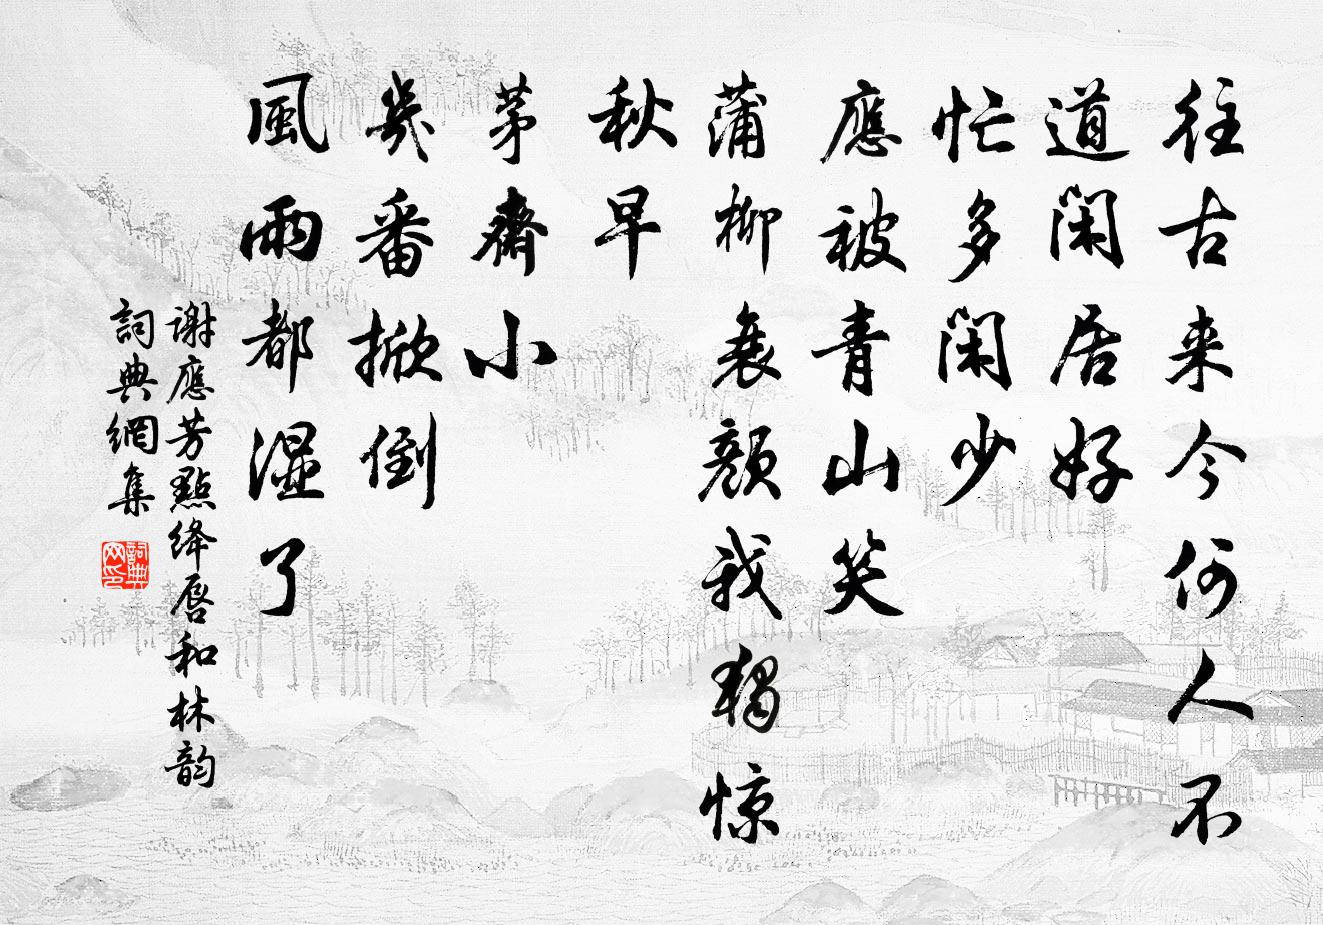 往古来今何人不
道闲居好
忙多闲少
應被青山笑
蒲柳衰顔我獨惊
秋早
茅齋小
幾番掀倒
風雨都湿了
謝應芳點绛唇和林韵
詞典網集
詞典网印